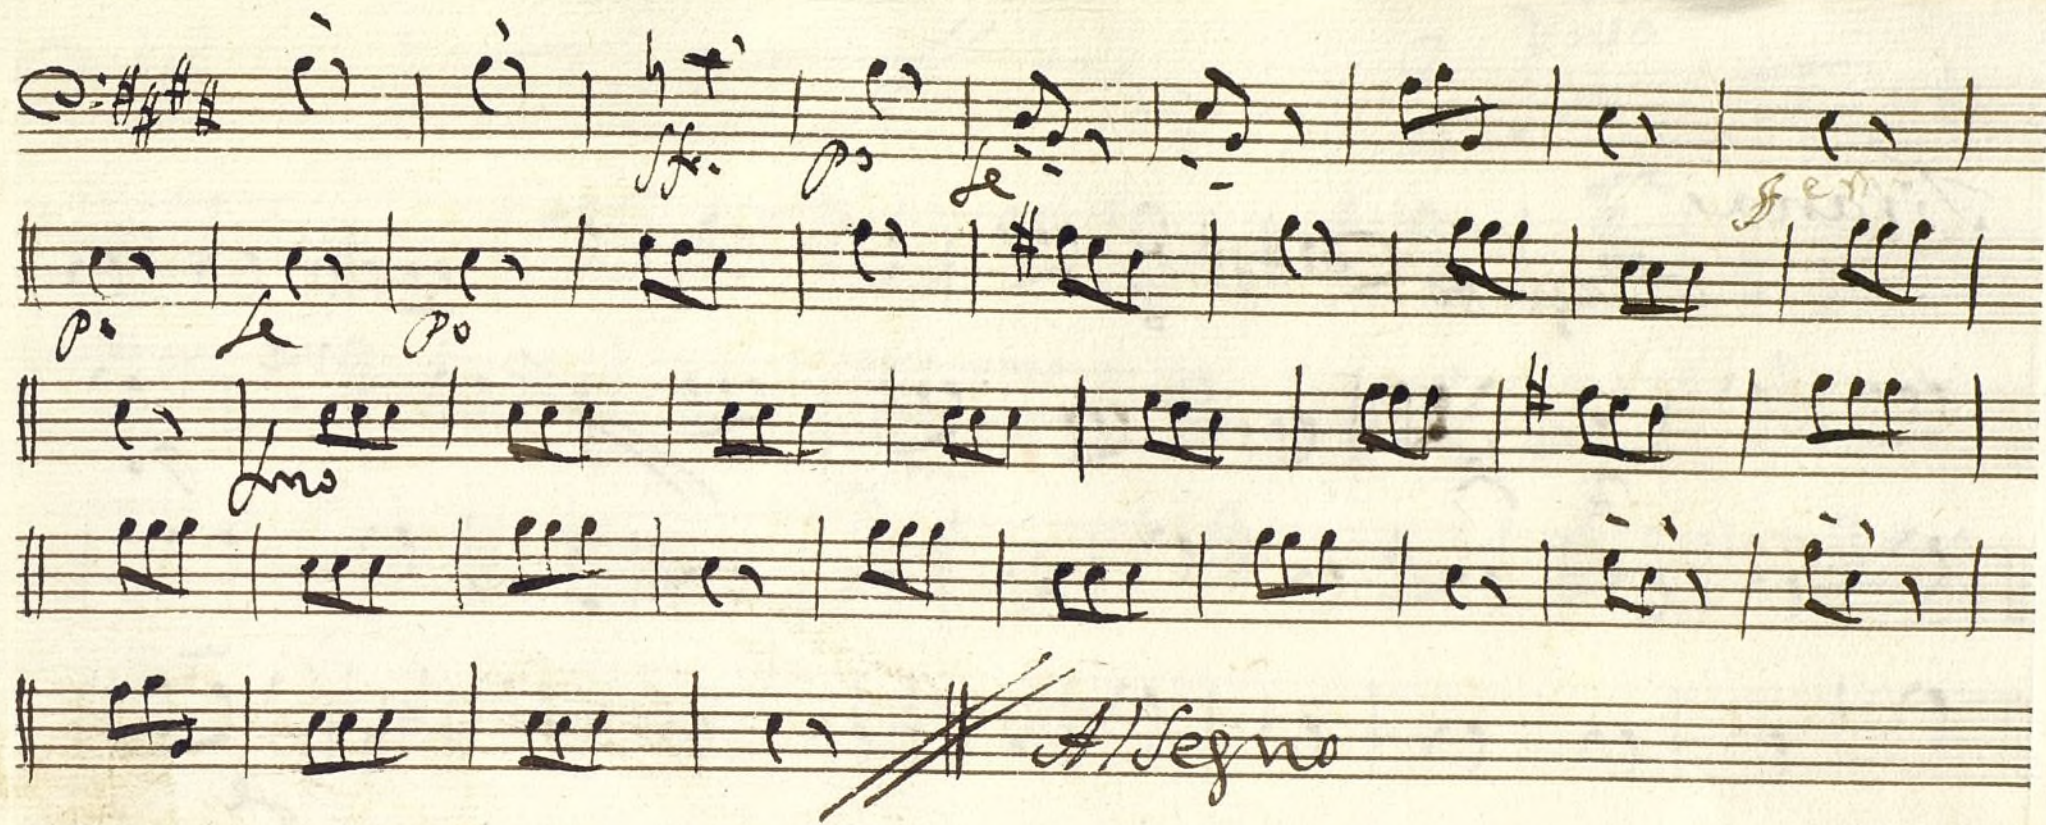 sfx. po fe
po fe po
fmo
Al Segno